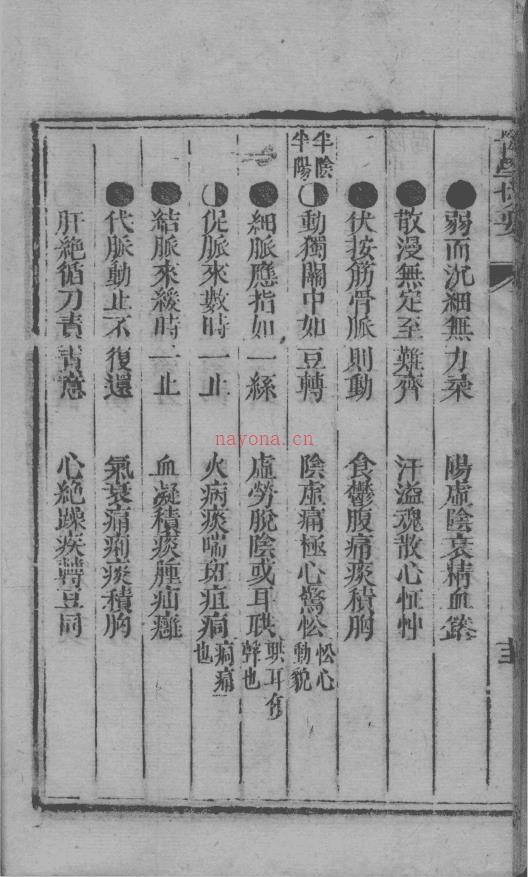 弱而沉細無力柔 陽虛陰衰精血
散漫無定至難齊 汗溢魂散心怔忡
伏按筋骨脈則動 食鬱腹痛痰積胸
半陰半陽 動獨關中如豆轉 陰虛痛極心驚忪 忪心動貌
細脈應指如一絲 虛勞脫陰或耳 耳 聲也
促脈來數時一止 火病痰喘斑疽痌 痌痛也
結脈來緩時一止 血凝積痰腫疝癰
代脈動止不復還 氣衰痛痢痰積胸
肝絕循刀責責慼 心絕躁疾轉豆同
nayona.cn